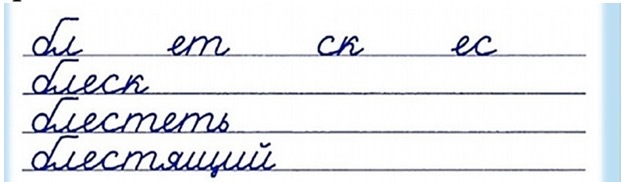 бл ет ск ес
блеск
блестеть
блестящий